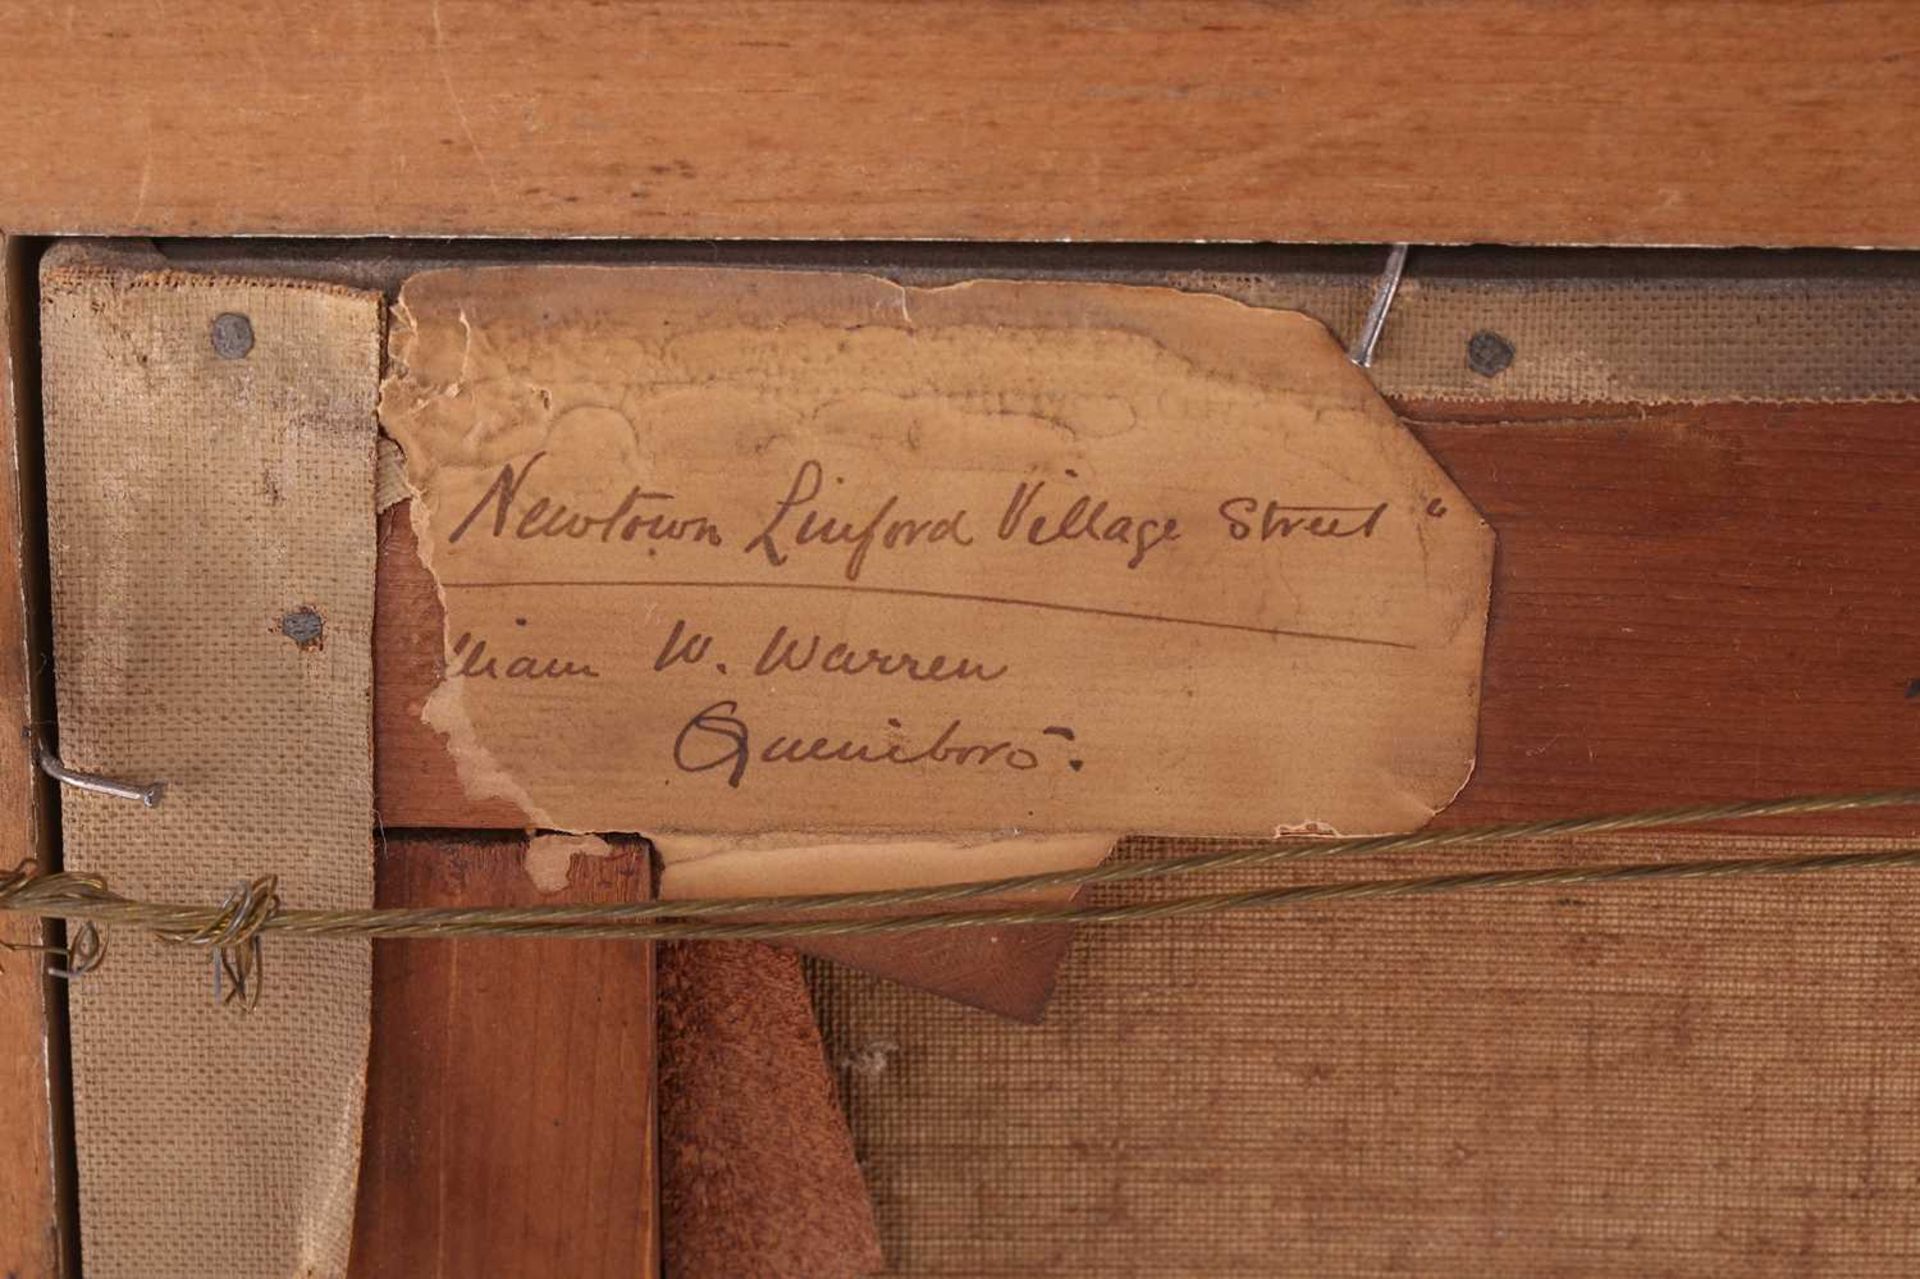 Newtown Linford Village Street "
lliam W. Warren
Queniboro.